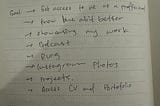 Goal → Get access to me as a professional
→ know me a bit better
→ showcasing my work
→ Podcast
→ Blog
→ Instagram Photos
→ projects.
→ Access CV and Portfolio